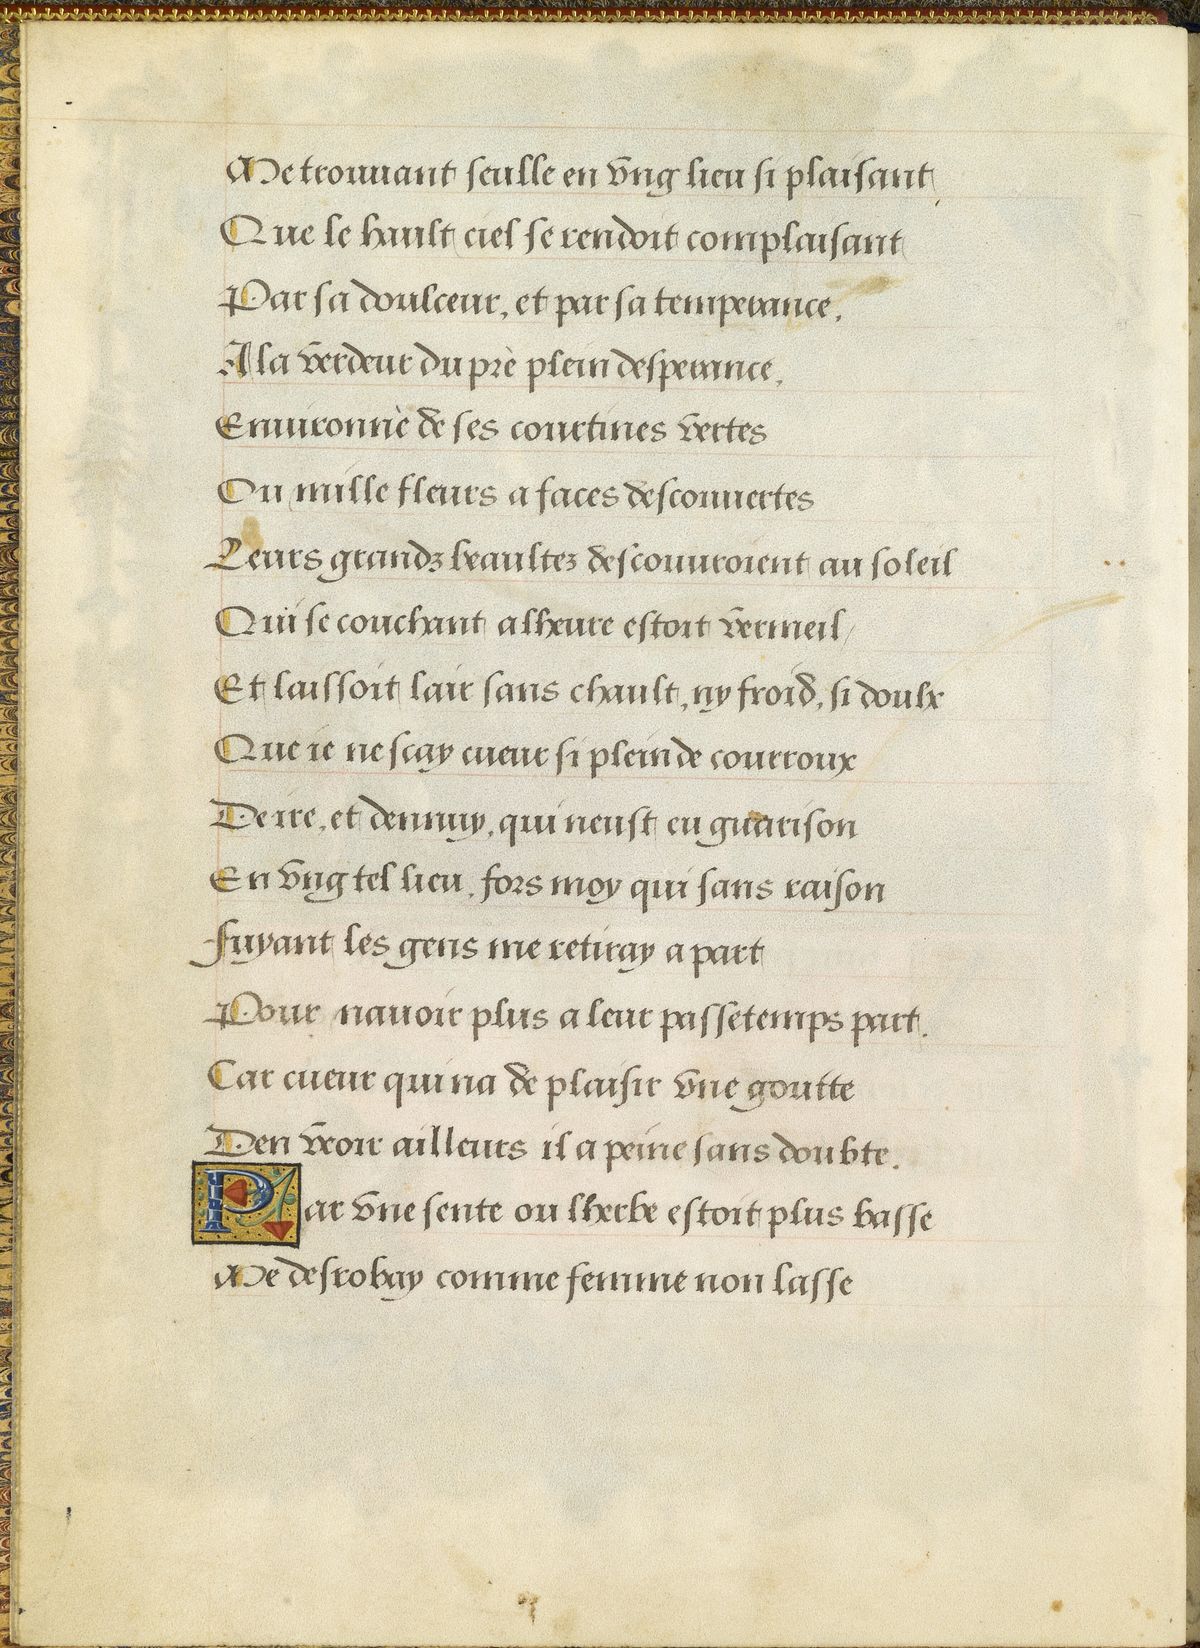 Me trouuant seulle en vng lieu si plaisant
Que le hault ciel se rendoit complaisant
Par sa doulceur, et par sa temperance,
A la verdeur du prè plein desperance,
Enuironnè de ses courtines vertes
Ou mille fleurs a faces descouuertes
Leurs grandz beaultez descouuroient au soleil
Qui se couchant a lheure estoit vermeil,
Et laissoit lair sans chault, ny froid, si doulx
Que ie ne scay cueur si plein de courroux
De ire, et dennuy, qui neust eu guarison
En vng tel lieu, fors moy qui sans raison
Fuyant les gens me retiray a part
Pour nauoir plus a leur passetemps part.
Car cueur qui na de plaisir vne goutte
Den veoir ailleurs il a peine sans doubte.
Par vne sente ou lherbe estoit plus basse
Me desrobay comme femme non lasse